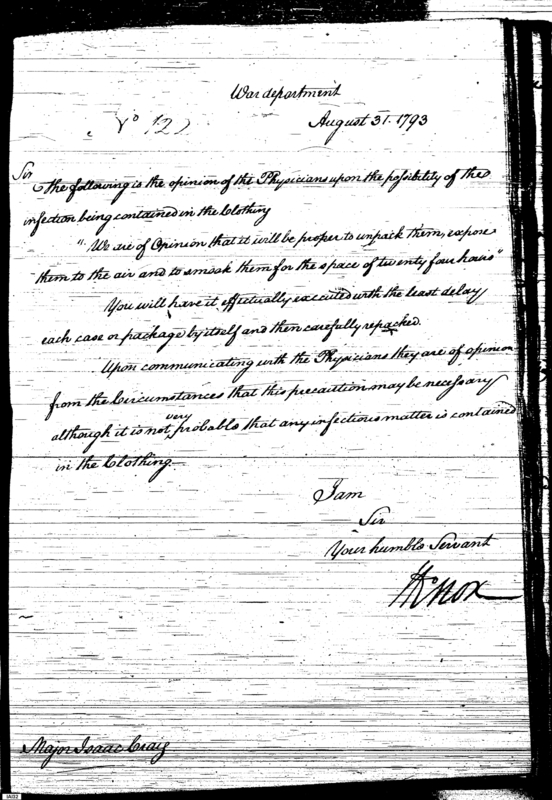 War department
No 12
August 31. 1793
Sir
The following is the opinion of the Physicians upon the possibility of the
infection being contained in the Clothing
"We are of Opinion that it will be proper to unpack them, expose
them to the air and to smoak them for the space of twenty four hours"
You will have it effectually executed with the least delay
each case or package by itself and then carefully repacked.
Upon communicating with the Physicians they are of opinion
from the Circumstances that this precaution may be necessary
very
although it is not, probable that any infectious matter is contained
in the Clothing
I am
Sir
Your humble Servant
HKnox
Major Isaac Craig